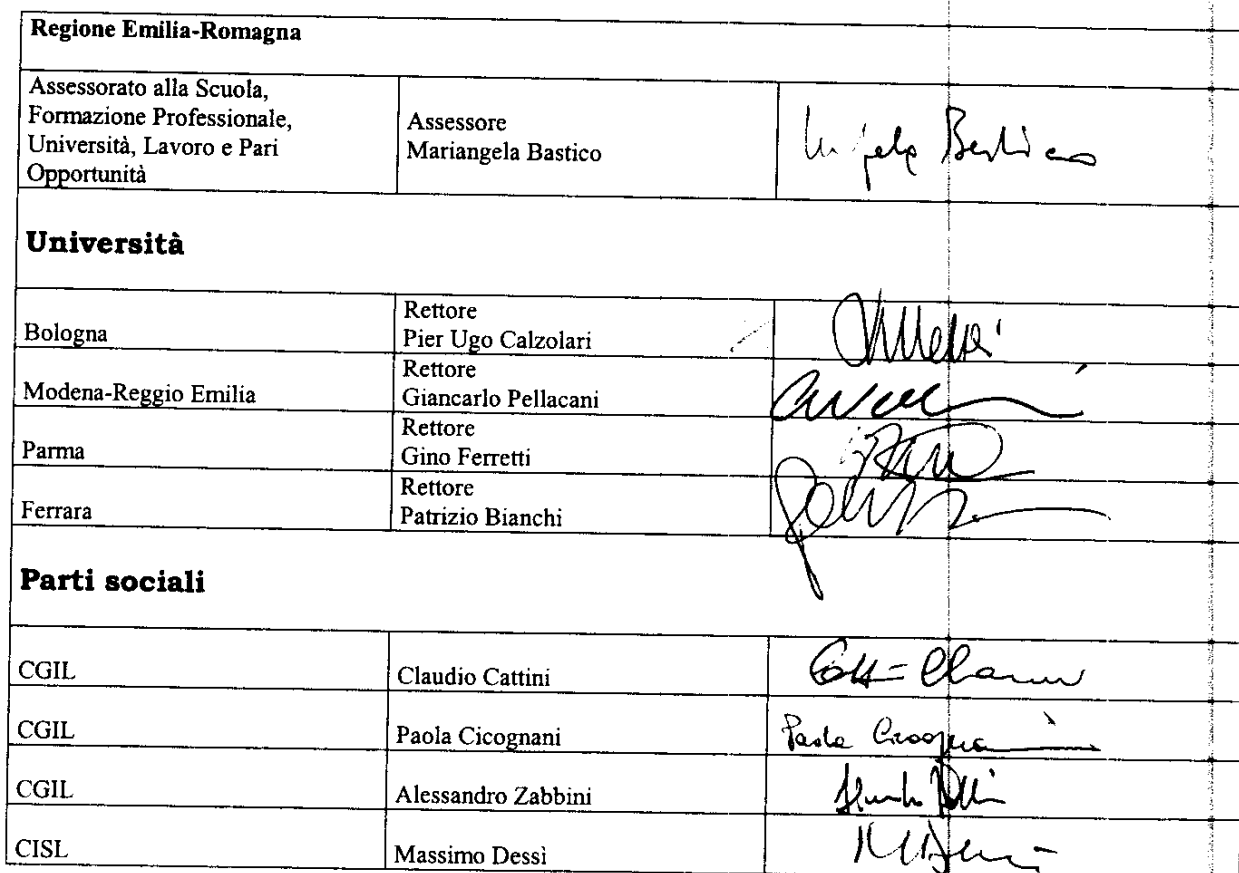 Regione Emilia-Romagna
Assessorato alla Scuola,
Formazione Professionale,
Università, Lavoro e Pari
Opportunità
Assessore
Mariangela Bastico
Università
Bologna
Rettore
Pier Ugo Calzolari
Modena-Reggio Emilia
Rettore
Giancarlo Pellacani
Parma
Rettore
Gino Ferretti
Ferrara
Rettore
Patrizio Bianchi
Parti sociali
CGIL
Claudio Cattini
CGIL
Paola Cicognani
Paola Cicognani
CGIL
Alessandro Zabbini
CISL
Massimo Dessì